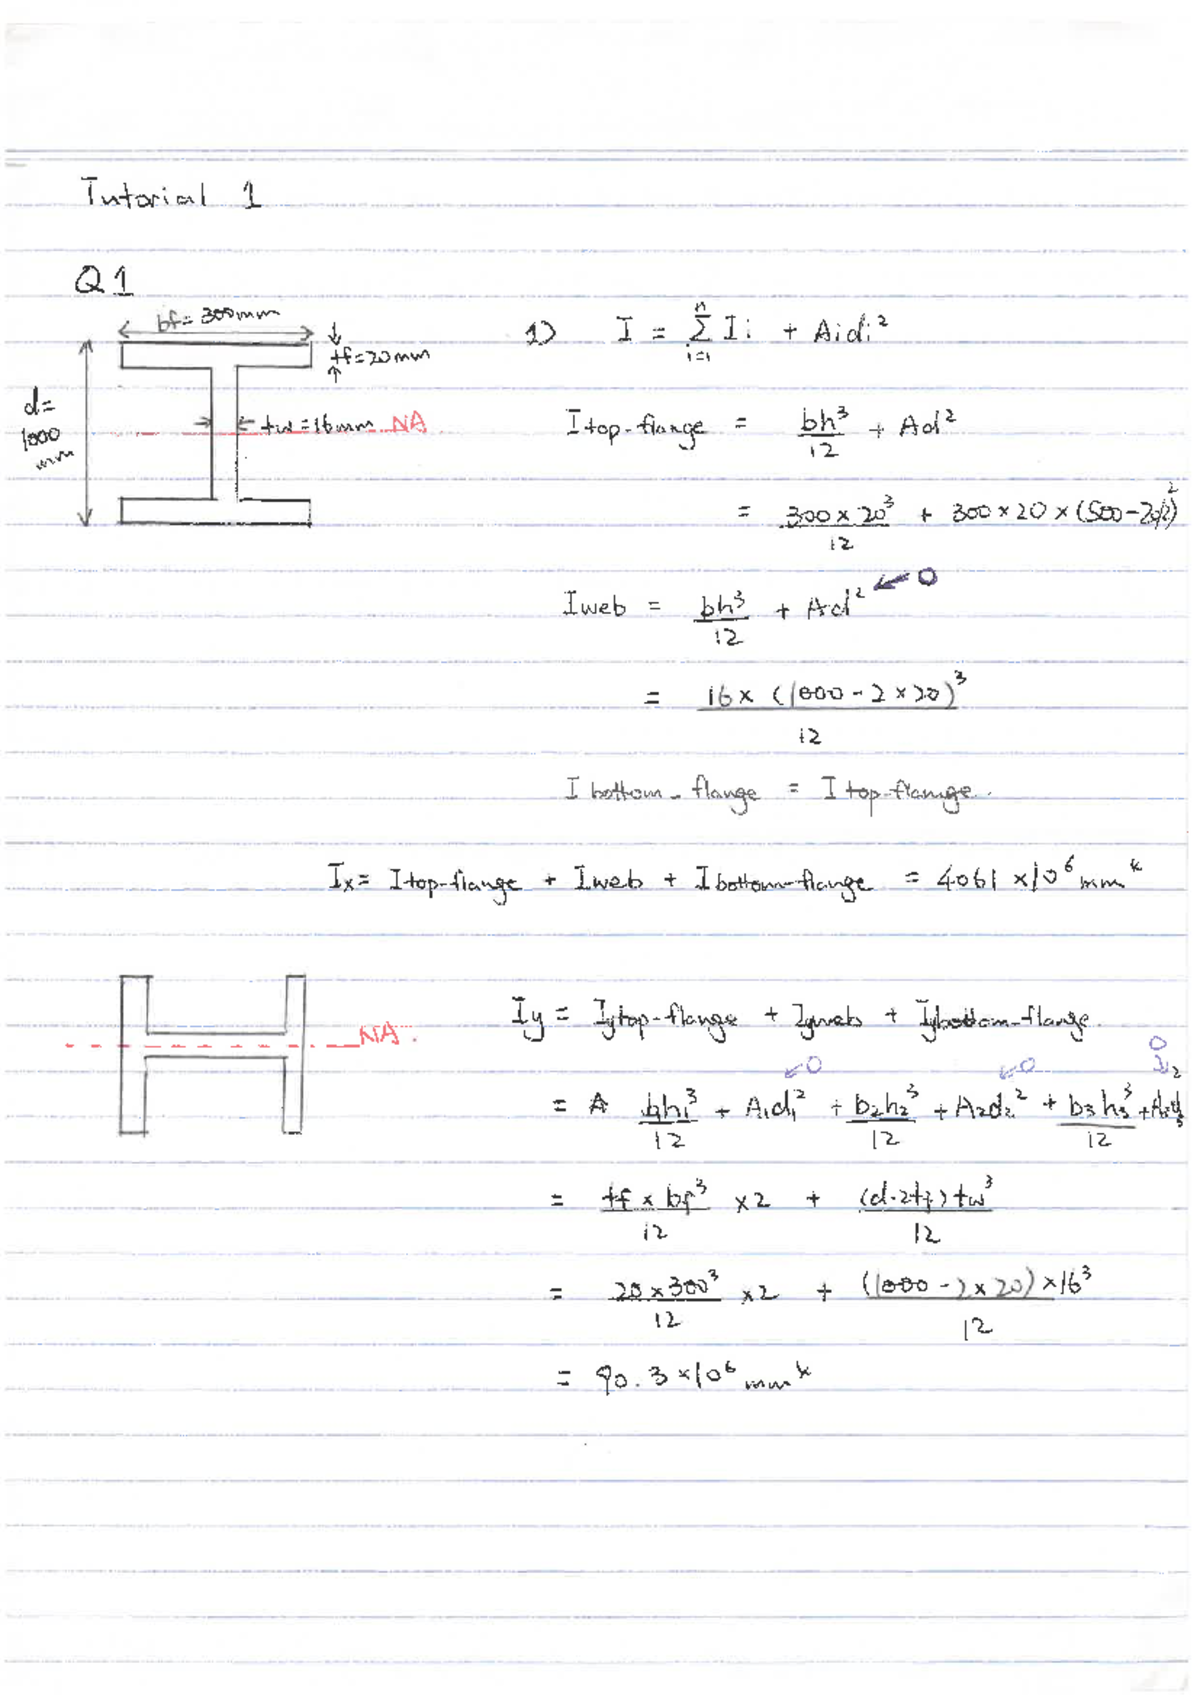 Tutorial 1
Q1
bf = 300mm
tf = 20mm
d = 1000 mm
tw = 16mm NA
1) I = Σ Ii + Aidi²
n
i=1
Itop-flange = bh³/12 + Ad²
= 300 × 20³/12 + 300 × 20 × (500 - 20/2)²
Iweb = bh³/12 + Ad² ← 0
= 16 × (1000 - 2 × 20)³/12
I bottom-flange = I top-flange.
Ix = Itop-flange + Iweb + Ibottom-flange = 4061 × 10⁶ mm⁴
NA.
Iy = Iytop-flange + Iyweb + Iybottom-flange.
0 0 0
= A b1h1³/12 + A1d1² + b2h2³/12 + A2d2² + b3h3³/12 + A3d3²
= tf × bf³/12 × 2 + (d-2tf) tw³/12
= 20 × 300³/12 × 2 + (1000 - 2 × 20) × 16³/12
= 90.3 × 10⁶ mm⁴